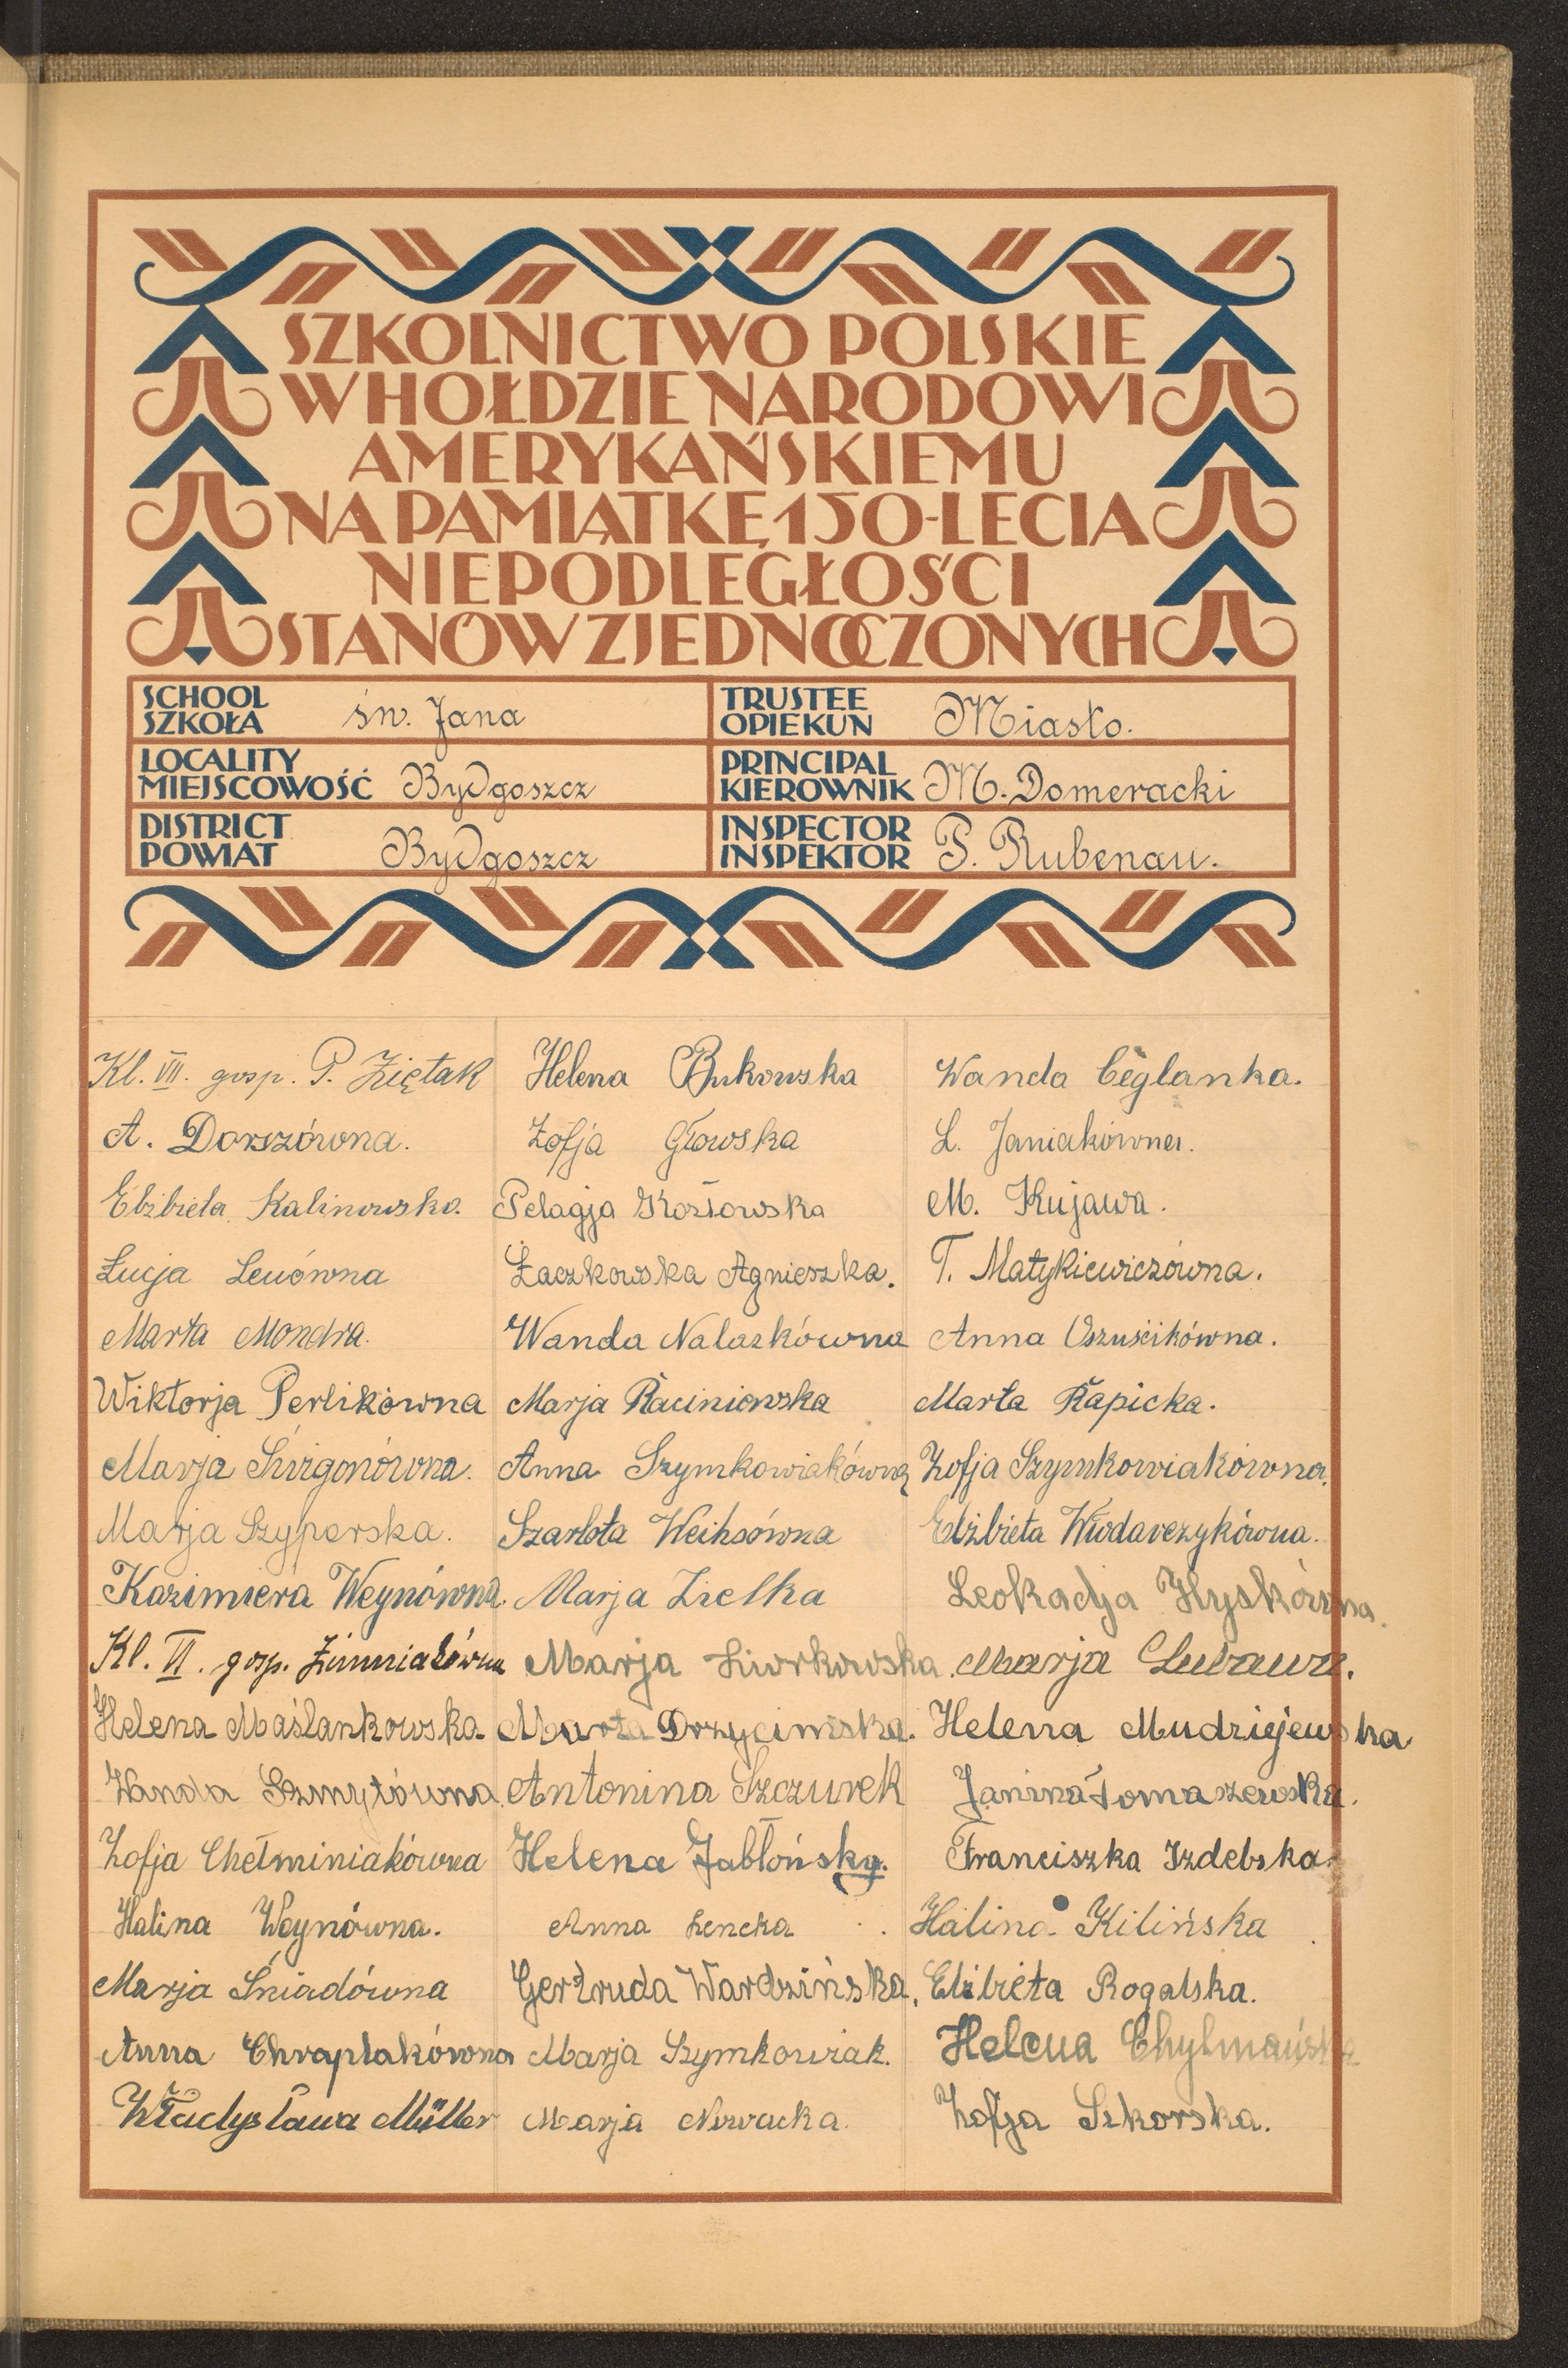 SZKOLNICTWO POLSKIE
W HOŁDZIE NARODOWI
AMERYKAŃSKIEMU
NA PAMIĄTKĘ 150-LECIA
NIEPODLEGŁOŚCI
STANÓW ZJEDNOCZONYCH
SCHOOL
SZKOŁA św. Jana
TRUSTEE
OPIEKUN Miasto.
LOCALITY
MIEJSCOWOŚĆ Bydgoszcz
PRINCIPAL
KIEROWNIK M. Domeracki
DISTRICT
POWIAT Bydgoszcz
INSPECTOR
INSPEKTOR P. Rubenau.
Kl. VII. gosp. P. Ziętak
A. Dorszówna.
Elżbieta Kalinowska.
Łucja Leuówna
Marta Mondra.
Wiktorja Perlikówna
Marja Śwігоnówna.
Marja Szyperska.
Kazimiera Weynówna.
Kl. VI. gosp. Zimniakówna
Helena Maślankowska
Wanda Szmytówna
Zofja Chełminiakówna
Halina Weynówna.
Marja Śniadówna
Anna Chraplakówna
Władysława Müller
Helena Bukowska
Zofja Głowska
Pelagja Kozłowska
Łaczkowska Agnieszka.
Wanda Nalazkówna
Marja Raciniewska
Anna Szymkowiakówna
Szarlota Weihsówna
Marja Zielka
Marja Ziorkowska.
Marta Drzycimska.
Antonina Szczurek
Helena Jabłońska.
Anna Lencka
Gertruda Wardzińska.
Marja Szymkowiak.
Marja Nowacka.
Wanda Ceglanka.
L. Janiakówna.
M. Kujawa.
T. Matykiewiczówna.
Anna Oszuścikówna.
Marta Rapicka.
Zofja Szymkowiakówna.
Elżbieta Włodarczykówna.
Leokadja Hyskówna.
Marja
Helena Mudziejewska
Janina Tomaszewska.
Franciszka Izdebska.
Halina Kilińska
Elżbieta Rogalska.
Helena Chylmańska
Zofja Sikorska.